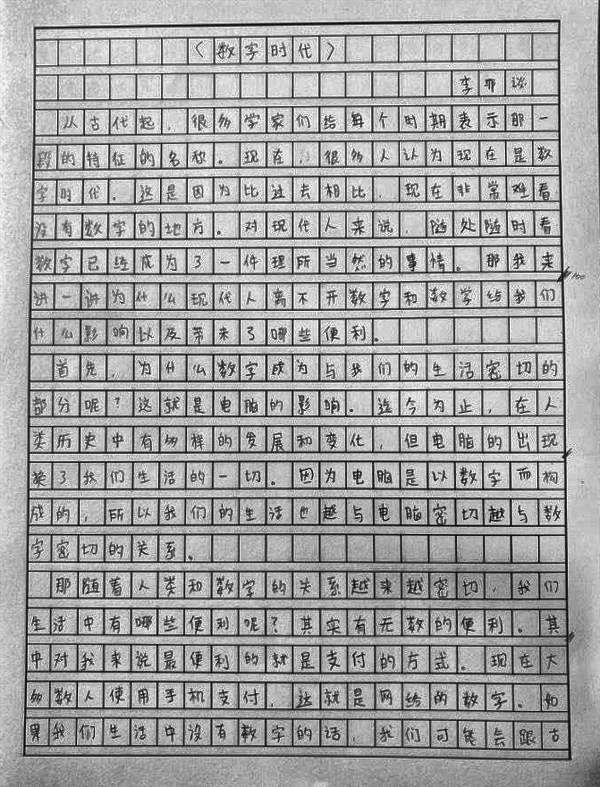 〈数字时代〉
李邢谈
从古代起，很多学家们给每个时期表示那一
段的特征的名称。现在 很多人认为现在是数
字时代。这是因为比过去相比，现在非常难看
没有数字的地方。对现代人来说，随处随时看
数字已经成为了一件理所当然的事情。那我来
讲一讲为什么现代人离不开数字和数学给我们
什么影响以及带来了哪些便利。
首先，为什么数字成为与我们的生活密切的
部分呢？这就是电脑的影响。迄今为止，在人
类历史中有多样的发展和变化，但电脑的出现
换了我们生活的一切。因为电脑是以数字而构
成的，所以我们的生活也越与电脑密切越与数
字密切的关系。
那随着人类和数字的关系越来越密切，我们
生活中有哪些便利呢？其实有无数的便利。其
中对我来说最便利的就是支付的方式。现在大
多数人使用手机支付，这就是网络的数字。如
果我们生活中没有数字的话，我们可能会跟古